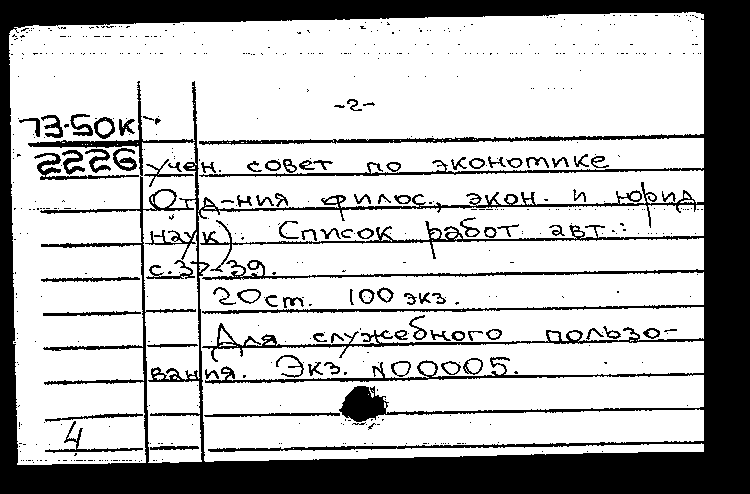 -2-
73-50к
2226
учен. совет по экономике
Отд-ния филос., экон. и юрид
наук). Список работ авт.:
с.37-39.
20ст. 100 экз.
Для служебного пользо-
вания. Экз. N00005.
4